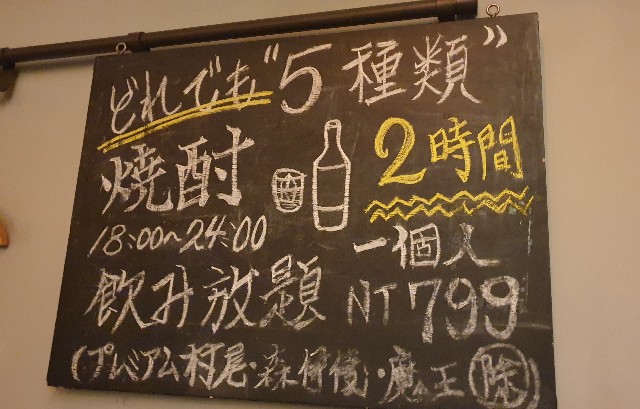 どれでも"5種類"
焼酎 2時間
18:00~24:00 一個人
飲み放題 NT 799
(プレミアム村尾・森伊蔵・魔王 除)